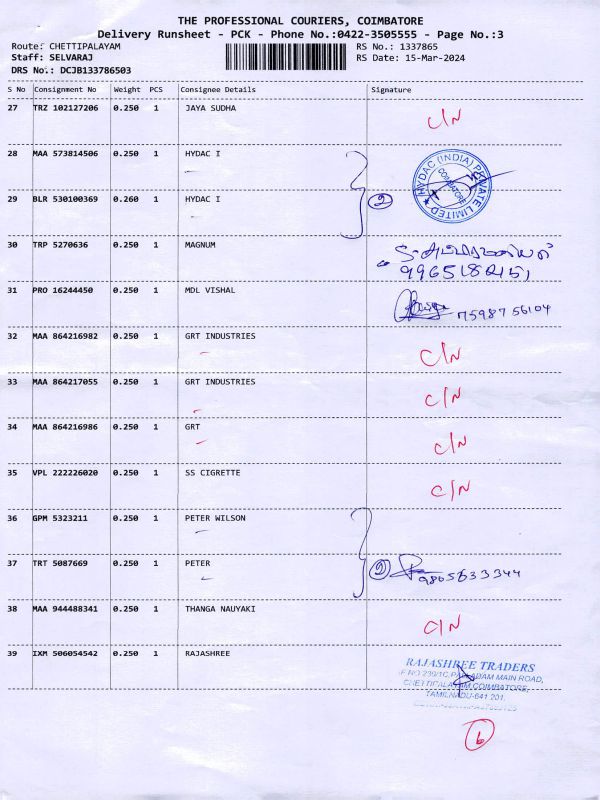 THE PROFESSIONAL COURIERS, COIMBATORE
Delivery Runsheet - PCK - Phone No.:0422-3505555 - Page No.:3
Route: CHETTIPALAYAM RS No.: 1337865
Staff: SELVARAJ RS Date: 15-Mar-2024
DRS No.: DCJB133786503
S No Consignment No Weight PCS Consignee Details Signature
27 TRZ 102127206 0.250 1 JAYA SUDHA C/N
28 MAA 573814506 0.250 1 HYDAC I
HYDAC (INDIA) PRIVATE LIMITED
COIMBATORE
29 BLR 530100369 0.260 1 HYDAC I 2
30 TRP 5270636 0.250 1 MAGNUM
31 PRO 16244450 0.250 1 MDL VISHAL
75987 56104
32 MAA 864216982 0.250 1 GRT INDUSTRIES
C/N
33 MAA 864217055 0.250 1 GRT INDUSTRIES
C/N
34 MAA 864216986 0.250 1 GRT
C/N
35 VPL 222226020 0.250 1 SS CIGRETTE
C/N
36 GPM 5323211 0.250 1 PETER WILSON
37 TRT 5087669 0.250 1 PETER
2 9865633344
38 MAA 944488341 0.250 1 THANGA NAUYAKI
C/N
39 IXM 506054542 0.250 1 RAJASHREE
RAJASHREE TRADERS
MAIN ROAD,
CHETTIPALAYAM, COIMBATORE,
TAMILNADU-641 201.
6